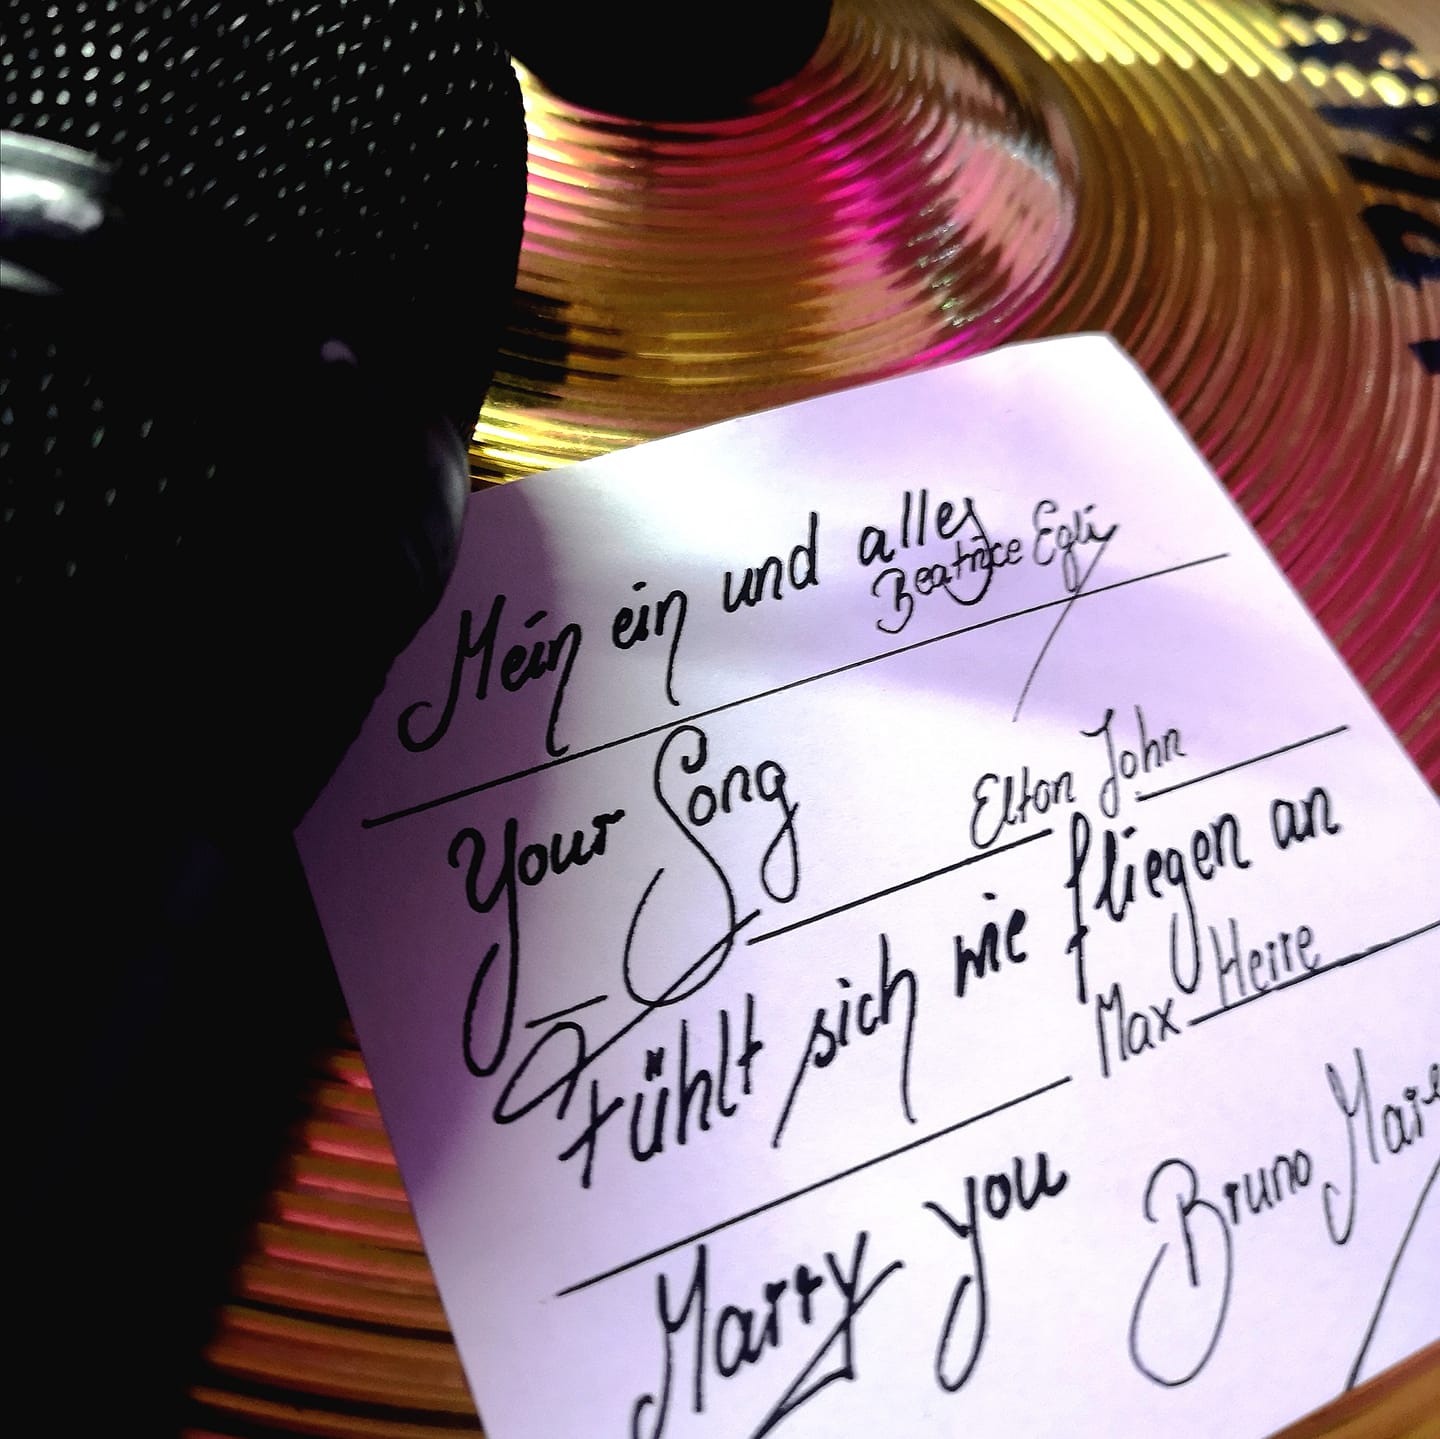 Mein ein und alles
Beatrice Egli
Your Song
Elton John
Fühlt sich wie fliegen an
Max Herre
Marry you
Bruno Mars